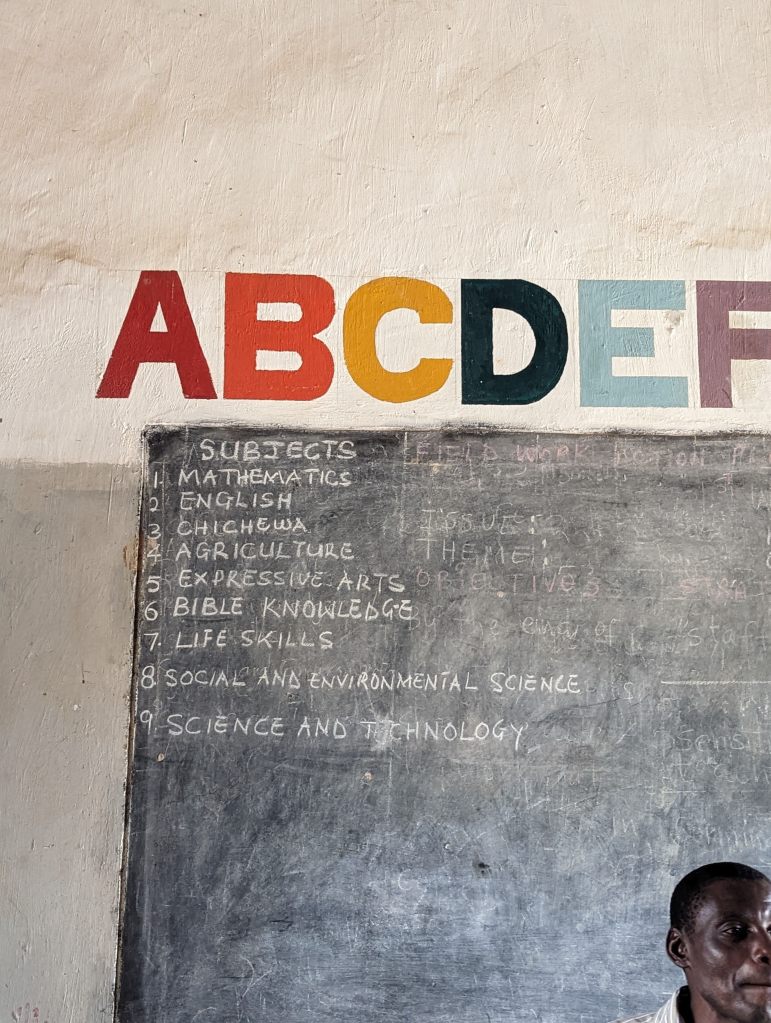 ABCDEF
SUBJECTS
1. MATHEMATICS
2 ENGLISH
3 CHICHEWA
4 AGRICULTURE
5 EXPRESSIVE ARTS
6 BIBLE KNOWLEDGE
7. LIFE SKILLS
8 SOCIAL AND ENVIRONMENTAL SCIENCE
9. SCIENCE AND TECHNOLOGY
FIELD WORK ACTION
ISSUE:
THEME:
OBJECTIVES
By the end of